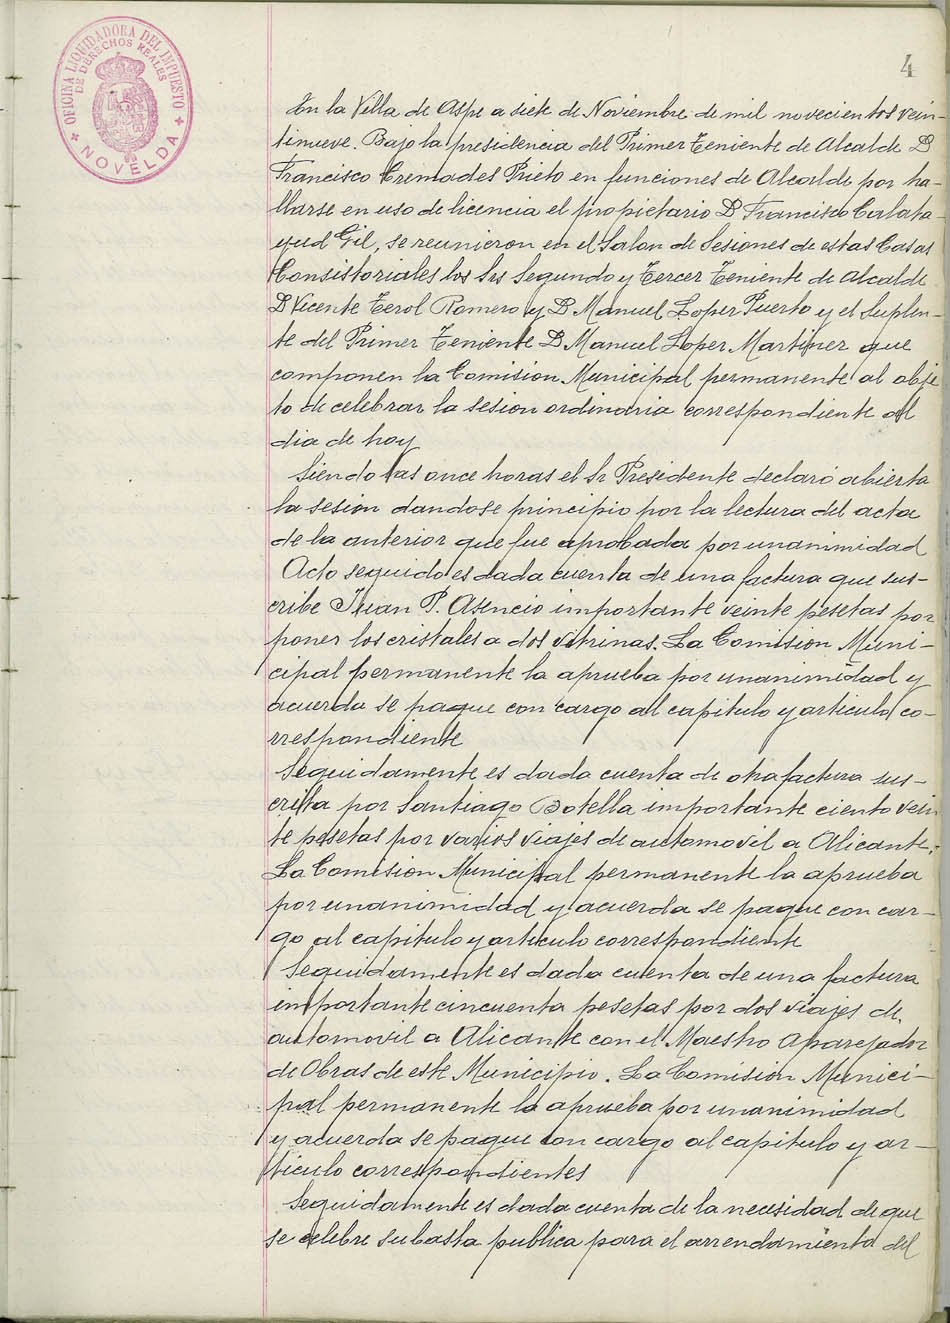 OFICINA LIQUIDADORA DEL IMPUESTO
DE DERECHOS REALES
NOVELDA
4
En la Villa de Aspe a siete de Noviembre de mil novecientos vein-
tinueve. Bajo la presidencia del Primer Teniente de Alcalde D.
Francisco Cremades Prieto en funciones de Alcalde por ha-
llarse en uso de licencia el propietario D Francisco Calata-
yud Gil, se reunieron en el Salon de Sesiones de estas Casas
Consistoriales los Srs Segundo y Tercer Teniente de Alcalde
D Vicente Terol Romero y D. Manuel Loper Puerto y el Suplen-
te del Primer Teniente D Manuel Loper Martiner que
componen la Comision Municipal permanente al obje
to de celebrar la sesion ordinaria correspondiente al
dia de hoy
Siendo las once horas el Sr Presidente declaró abierta
la sesion dandose principio por la lectura del acta
de la anterior que fue aprobada por unanimidad
Acto seguido es dada cuenta de una factura que sus-
cribe Juan P. Asencio importante veinte pesetas por
poner los cristales a dos vitrinas. La Comision Muni-
cipal permanente la aprueba por unanimidad y
acuerda se pague con cargo al capitulo y articulo co-
rrespondiente
Seguidamente es dada cuenta de otra factura sus-
crita por Santiago Botella importante ciento vein
te pesetas por varios viajes de automovil a Alicante.
La Comision Municipal permanente la aprueba
por unanimidad y acuerda se pague con car-
go al capitulo y articulo correspondiente
Seguidamente es dada cuenta de una factura
importante cincuenta pesetas por dos viajes de
automovil a Alicante con el Maestro Aparejador
de Obras de este Municipio. La Comision Munici-
pal permanente la aprueba por unanimidad
y acuerda se pague con cargo al capitulo y ar-
ticulo correspondientes
Seguidamente es dada cuenta de la necesidad de que
se celebre subasta publica para el arrendamiento del